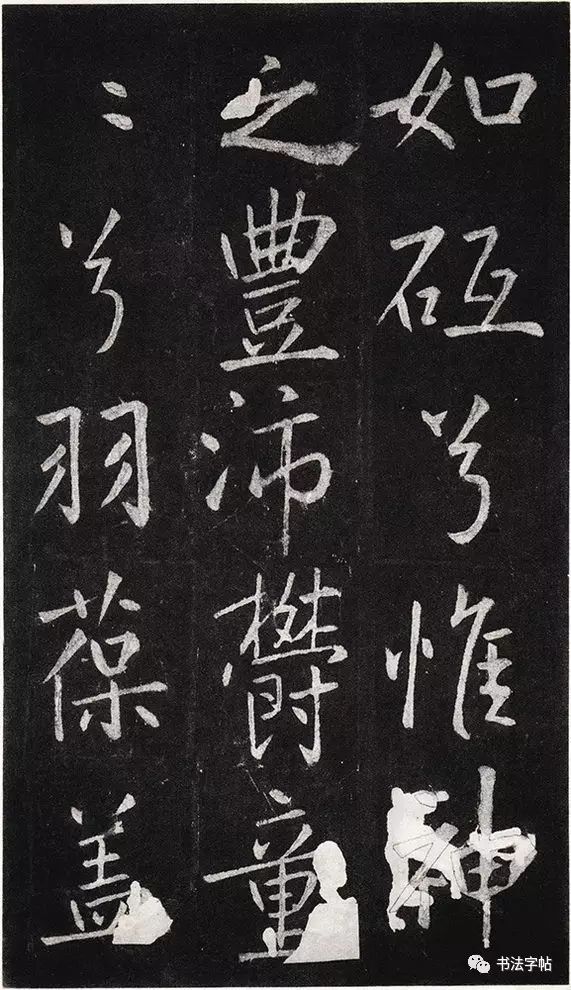 如砥兮惟神
之豐沛欝童
〻兮羽葆盖
书法字帖